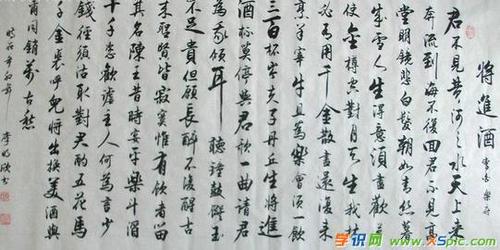 將進酒
李白 樂府
君不見黃河之水天上來
奔流到海不復回君不見高
堂明鏡悲白髮朝如青絲暮
成雪人生得意須盡歡莫
使金樽空對月天生我材
必有用千金散盡還復來
烹羊宰牛且爲樂會須一飲
三百杯岑夫子丹丘生將進
酒杯莫停與君歌一曲請君
為我傾耳聽鐘鼓饌玉
不足貴但願長醉不復醒古
來聖賢皆寂寞惟有飲者留
其名陳王昔時宴平樂斗酒
十千恣歡謔主人何為言少
錢徑須沽取對君酌五花馬
千金裘呼兒將出換美酒與
爾同銷萬古愁
学识网 www.xSpic.com